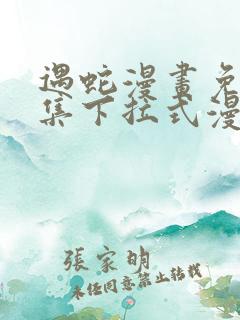 遇蛇漫畫免
集下拉式漫
張家明
未经同意禁止转载